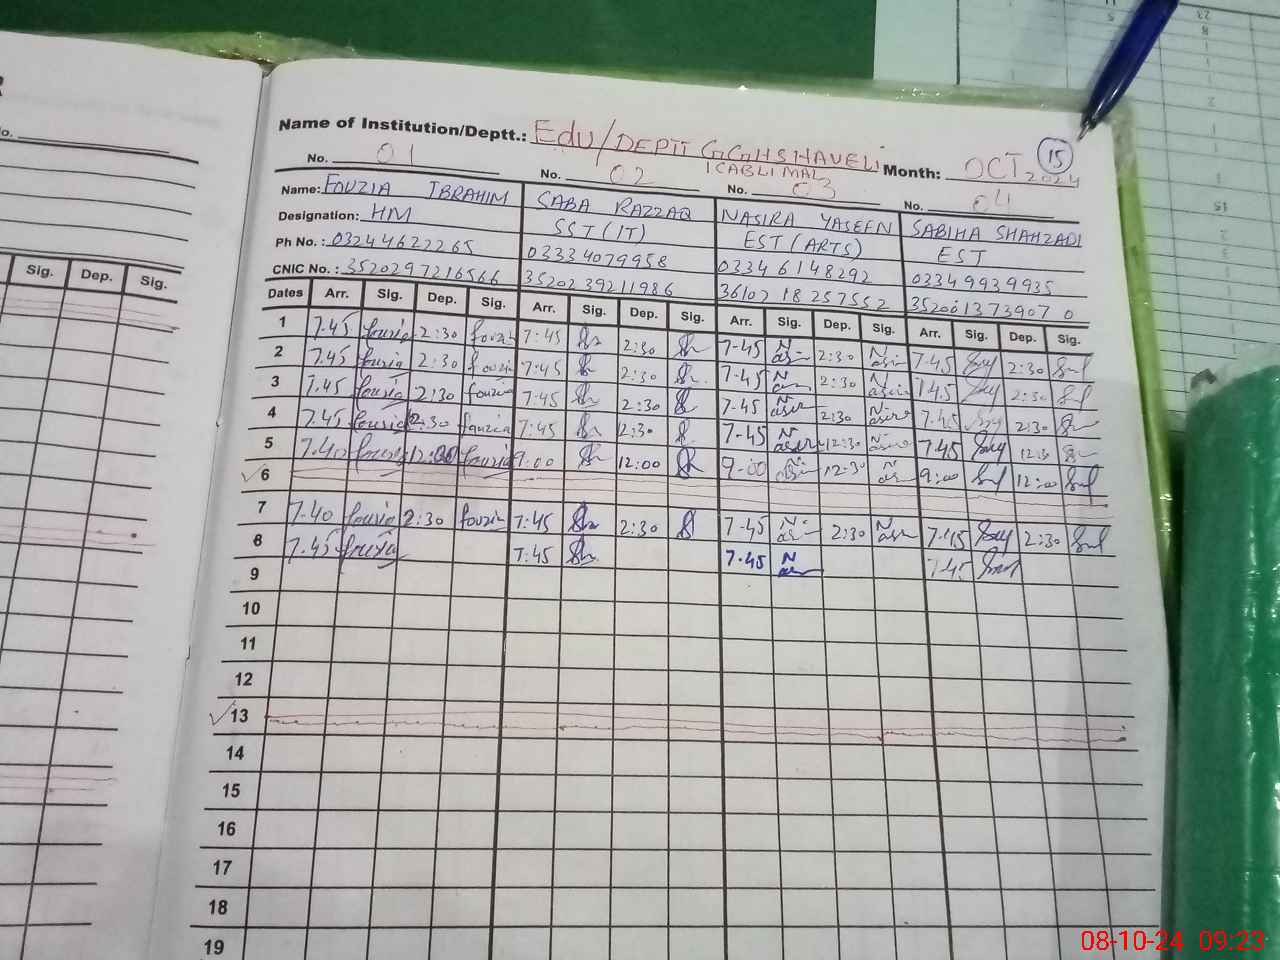 Name of Institution/Deptt.: Edu/DEPTT GGHS HAVELI Month: OCT 2024 15
KABLI MAL
No. 01 No. 02 No. 03 No. 04
Name: FOUZIA IBRAHIM SABA RAZZAQ NASIRA YASEEN SABIHA SHAHZADI
Designation: HM SST (IT) EST (ARTS) EST
Ph No. : 03244622265 03334079958 03346148292 03349939935
CNIC No. : 3520297216566 3520239211986 3610218257552 3520013739070
Dates Arr. Sig. Dep. Sig. Arr. Sig. Dep. Sig. Arr. Sig. Dep. Sig. Arr. Sig. Dep. Sig.
1 7.45 fouzia 2:30 fouzia 7:45 2:30 7-45 Nasir 2:30 Nasir 7.45 2:30
2 7.45 fouzia 2:30 fouzia 7:45 2:30 7-45 Nasir 2:30 Nasir 7.45 2:30
3 7.45 fouzia 2:30 fouzia 7:45 2:30 7-45 Nasir 2:30 Nasir 7.45 2:30
4 7.45 fouzia 2:30 fouzia 7:45 12:30 7-45 Nasir 12:30 Nasir 7.45 12:30
5 7.40 fouzia 12:00 fouzia 9:00 12:00 9-00 Nasir 12:30 Nasir 9:00 12:00
6
7 7.40 fouzia 2:30 fouzia 7:45 2:30 7-45 Nasir 2:30 Nasir 7.45 2:30
8 7.45 fouzia 7:45 7.45 Nasir 7.45
9
10
11
12
13
14
15
16
17
18
19
No.
Sig. Dep. Sig.
08-10-24 09:23